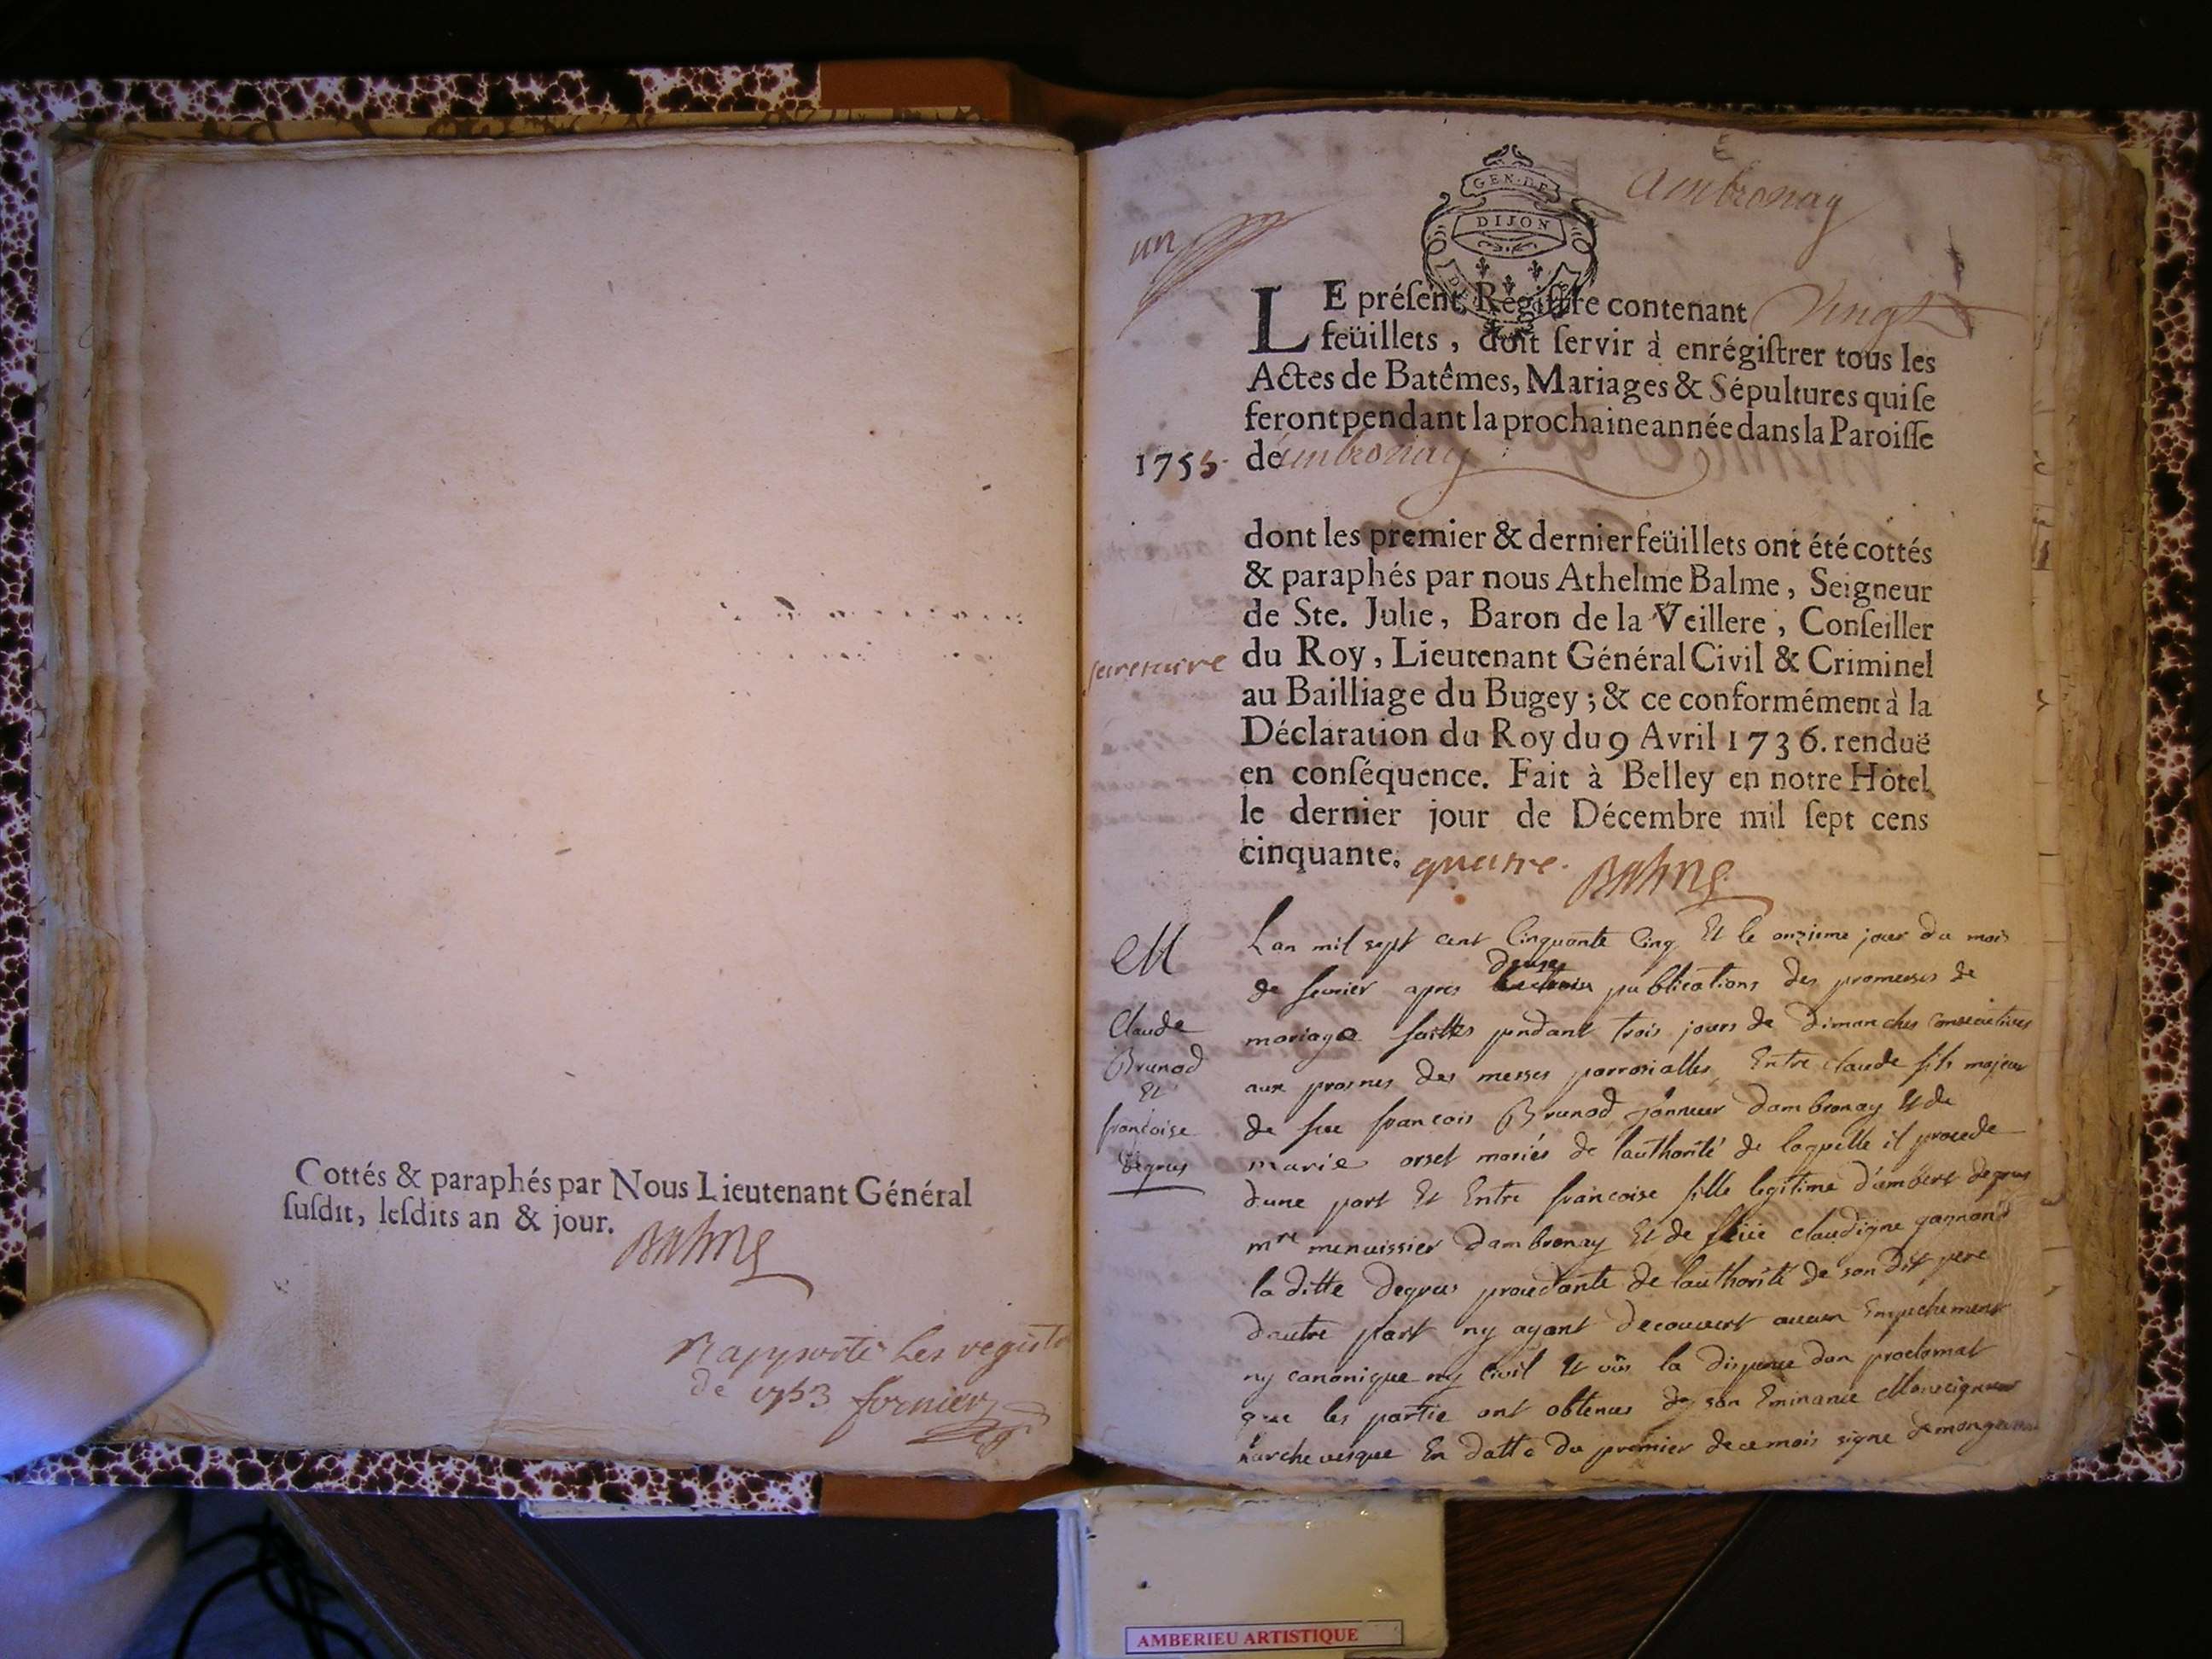 Cottés & paraphés par Nous Lieutenant Général
ſuſdit, leſdits an & jour.
Balme
Rapporté les registr
de 1753 fornier
GEN. DE
DIJON
Ambronay
un
LE préſent Régiſtre contenant Vingt
feüillets, doit ſervir à enrégiſtrer tous les
Actes de Batêmes, Mariages & Sépultures qui ſe
feront pendant la prochaine année dans la Paroiſſe
1755. de ambronay
dont les premier & dernier feüillets ont été cottés
& paraphés par nous Athelme Balme, Seigneur
de Ste. Julie, Baron de la Veillere, Conſeiller
secretaire du Roy, Lieutenant Général Civil & Criminel
au Bailliage du Bugey; & ce conformément à la
Déclaration du Roy du 9 Avril 1736. renduë
en conſéquence. Fait à Belley en notre Hôtel
le dernier jour de Décembre mil ſept cens
cinquante. quatre. Balme
M
Claude
Brunod
Et
françoise
degrus
Lan mil sept cent Cinquante Cinq Et le onzieme jour du mois
deuse
de fevrier apres publications des promesses de
mariage faittes pendant trois jours de dimanches consecutives
aux prosnes des messes parrosialles Entre claude fils majeur
de feu francois Brunod dambronay Et de
marie orset mariés de lauthorité de laquelle il procede
dune part Et Entre francoise fille legitime d'ambert degrus
mre menuissier dambronay Et de claudigne gagnand
la ditte degrus procedante de lauthorité de son dit pere
dautre part ny ayant decouvert aucun Empechement
ny canonique ny civil Et vûs la dispense dun proclamat
que les partie ont obtenus de son Eminance Monseigneur
larchevesque En datte du premier de ce mois signe
AMBERIEU ARTISTIQUE